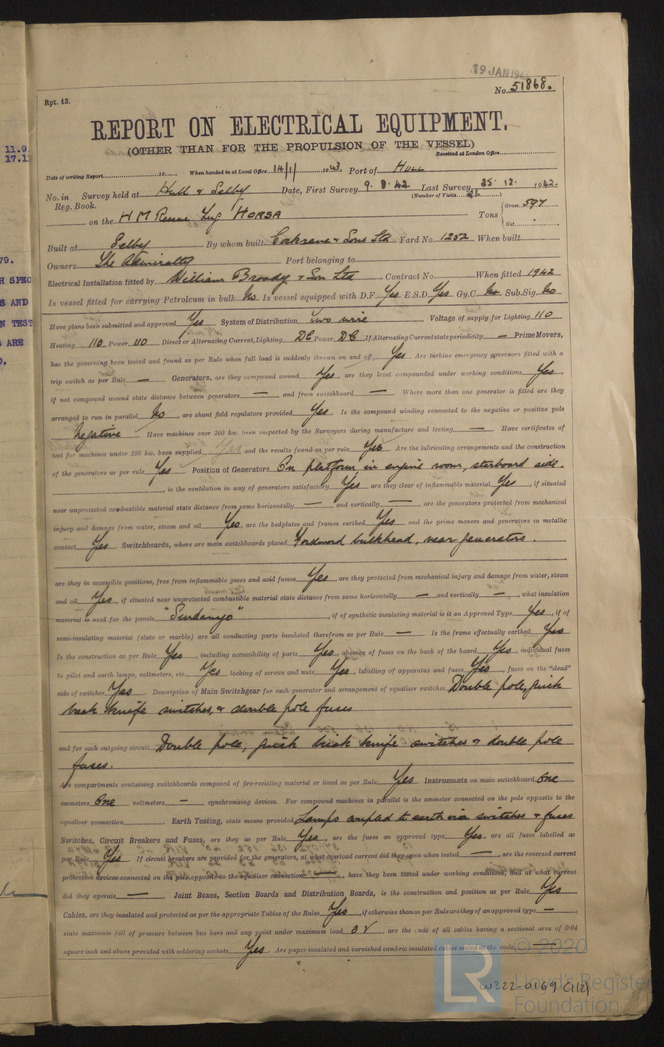 29 JAN 194
Rpt. 13.
No. 51868.
REPORT ON ELECTRICAL EQUIPMENT.
(OTHER THAN FOR THE PROPULSION OF THE VESSEL)
Received at London Office
Date of writing Report 19 When handed in at Local Office 14/1/ 1943 Port of Hull
No. in Survey held at Hull & Selby Date, First Survey 9.8.42 Last Survey 25.12.1942
Reg. Book. (Number of Visits 21.)
on the H M Rescue Tug HORSA Tons { Gross 597 Net
Built at Selby By whom built Cochrane & Sons Ltd Yard No. 1252 When built
Owners The Admiralty Port belonging to
Electrical Installation fitted by William Broady & Son Ltd Contract No. When fitted 1942
Is vessel fitted for carrying Petroleum in bulk No. Is vessel equipped with D.F. Yes E.S.D. Yes Gy.C. No Sub.Sig. No
Have plans been submitted and approved Yes System of Distribution Two wire Voltage of supply for Lighting 110
Heating 110 Power 110 Direct or Alternating Current, Lighting DC Power DC If Alternating Current state periodicity — Prime Movers,
has the governing been tested and found as per Rule when full load is suddenly thrown on and off Yes Are turbine emergency governors fitted with a
trip switch as per Rule — Generators, are they compound wound Yes, are they level compounded under working conditions Yes,
if not compound wound state distance between generators — and from switchboard — Where more than one generator is fitted are they
arranged to run in parallel No, are shunt field regulators provided Yes Is the compound winding connected to the negative or positive pole
Negative Have machines over 100 kw. been inspected by the Surveyors during manufacture and testing — Have certificates of
test for machines under 100 kw. been supplied Yes and the results found as per rule Yes Are the lubricating arrangements and the construction
of the generators as per rule Yes Position of Generators On platform in engine room, starboard side.
, is the ventilation in way of generators satisfactory Yes, are they clear of inflammable material Yes, if situated
near unprotected combustible material state distance from same horizontally — and vertically —, are the generators protected from mechanical
injury and damage from water, steam and oil Yes, are the bedplates and frames earthed Yes and the prime movers and generators in metallic
contact Yes Switchboards, where are main switchboards placed Forward bulkhead, near generators.
are they in accessible positions, free from inflammable gases and acid fumes Yes, are they protected from mechanical injury and damage from water, steam
and oil Yes, if situated near unprotected combustible material state distance from same horizontally — and vertically —, what insulation
material is used for the panels "Sindanyo", if of synthetic insulating material is it an Approved Type Yes, if of
semi-insulating material (slate or marble) are all conducting parts insulated therefrom as per Rule — Is the frame effectually earthed Yes
Is the construction as per Rule Yes, including accessibility of parts Yes, absence of fuses on the back of the board Yes, individual fuses
to pilot and earth lamps, voltmeters, etc. Yes locking of screws and nuts Yes, labelling of apparatus and fuses Yes, fuses on the "dead"
side of switches Yes Description of Main Switchgear for each generator and arrangement of equaliser switches Double pole, quick
break knife switches, & double pole fuses
and for each outgoing circuit Double pole, quick break knife switches & double pole
fuses.
Are compartments containing switchboards composed of fire-resisting material or lined as per Rule Yes Instruments on main switchboard One
ammeters One voltmeters — synchronising devices. For compound machines in parallel is the ammeter connected on the pole opposite to the
equaliser connection Earth Testing, state means provided Lamps coupled to earth via switches & fuses
Switches, Circuit Breakers and Fuses, are they as per Rule Yes, are the fuses an approved type Yes, are all fuses labelled as
per Rule Yes If circuit breakers are provided for the generators, at what overload current did they open when tested —, are the reversed current
protection devices connected on the pole opposite to the equaliser connection —, have they been tested under working conditions, and at what current
did they operate — Joint Boxes, Section Boards and Distribution Boards, is the construction and position as per Rule Yes
Cables, are they insulated and protected as per the appropriate Tables of the Rules Yes, if otherwise than as per Rule are they of an approved type —
state maximum fall of pressure between bus bars and any point under maximum load 3 V, are the ends of all cables having a sectional area of 0.04
square inch and above provided with soldering sockets Yes Are paper insulated and varnished cambric insulated cables sealed at the ends —
© 2020
LR
Lloyd's Register
Foundation
W222-0169 (1/2)
11.9
17.1
79.
R SPEC
S AND
N TEST
ARE